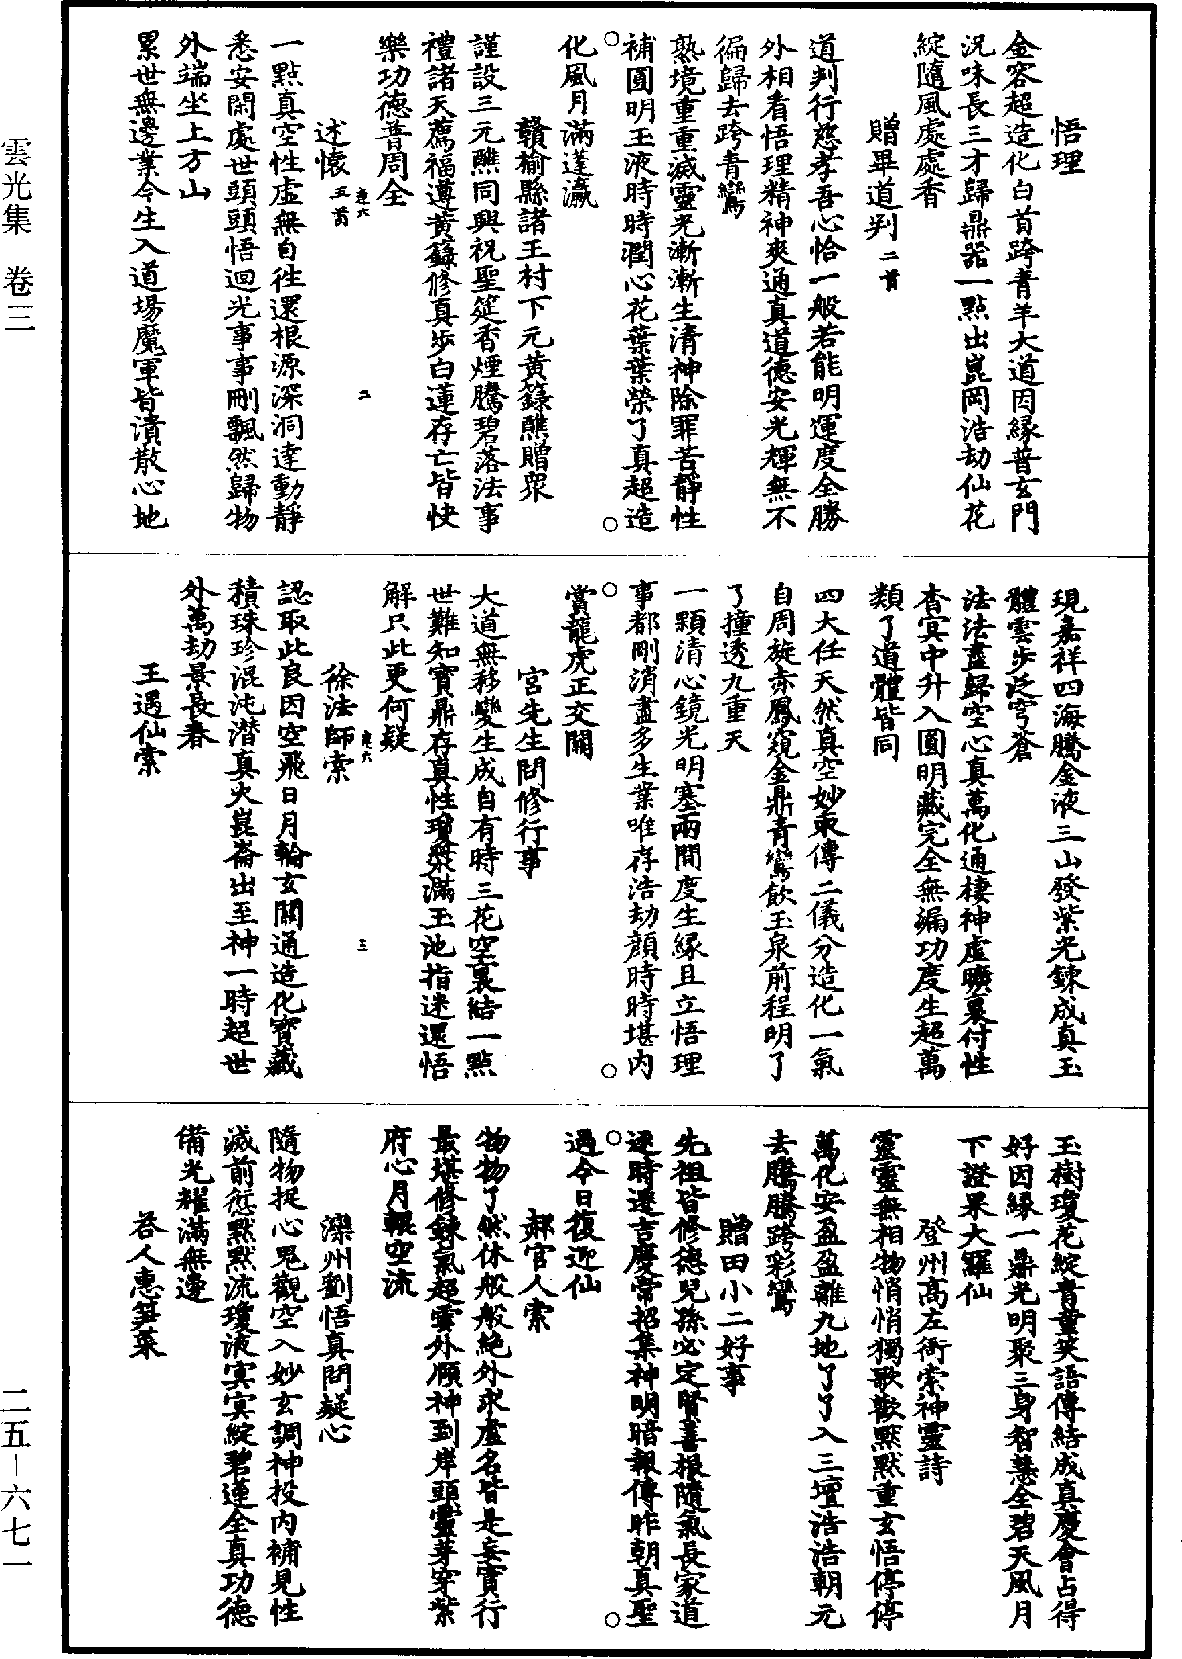 悟理
金容超造化白首跨青羊大道因緣普玄門
況味長三才歸鼎器一點出崑岡浩劫仙花
綻隨風處處香
贈畢道判二首
道判行慈孝吾心恰一般若能明運度全勝
外相看悟理精神爽通真道德安光輝無不
徧歸去跨青鸞
熟境重重滅靈光漸漸生清神除罪苦靜性
補圓明玉液時時潤心花葉葉榮了真超造
化風月滿蓬瀛
贛榆縣諸王村下元黃籙醮贈眾
謹設三元醮同興祝聖筵香煙騰碧落法事
禮諸天薦福遵黃籙修真步白蓮存亡皆快
樂功德普周全
述懷五首
一點真空性虛無自往還根源深洞達動靜
悉安閑處世頭頭悟迴光事事刪飄然歸物
外端坐上方山
累世無邊業今生入道場魔軍皆潰散心地
現嘉祥四海騰金液三山發紫光鍊成真玉
體雲步泛穹蒼
法法盡歸空心真萬化通棲神虛曠裏付性
杳冥中升入圓明藏完全無漏功度生超萬
類了道體皆同
四大任天然真空妙東傳二儀分造化一氣
自周旋赤鳳窺金鼎青鸞飲玉泉前程明了
了撞透九重天
一顆清心鏡光明塞兩間度生緣且立悟理
事都刪消盡多生業唯存浩劫顏時時堪內
賞龍虎正交關
宮先生問修行事
大道無移變生成自有時三花空裏結一點
世難知寶鼎存真性瓊漿滿玉池指迷還悟
解只此更何疑
徐法師索
認取此良因空飛日月輪玄關通造化寶藏
積珠珍混沌潛真火崑崙出至神一時超世
外萬劫景長春
王遇仙索
玉樹瓊花綻青童笑語傳結成真慶會占得
好因緣一鼎光明聚三身智慧全碧天風月
下證果大羅仙
登州高左衙索神靈詩
靈靈無相物悄悄獨歌歡默默重玄悟停停
萬化安盈盈離九地了了入三壇浩浩朝元
去騰騰跨彩鸞
贈田小二好事
先祖皆修德兒孫必定賢善根隨氣長家道
逐時遷吉慶常招集神明暗報傳昨朝真聖
過今日復迎仙
郝官人索
物物了然休般般絕外求虛名皆是妄實行
最堪修鍊氣超雲外願神到岸頭靈芽穿紫
府心月輥空流
灤州劉悟真問疑心
隨物捉心鬼觀空入妙玄調神投內補見性
滅前愆默默流瓊液冥冥綻碧蓮全真功德
備光耀滿無邊
答人惠笋菜
雲光集 卷三
二五—六七一